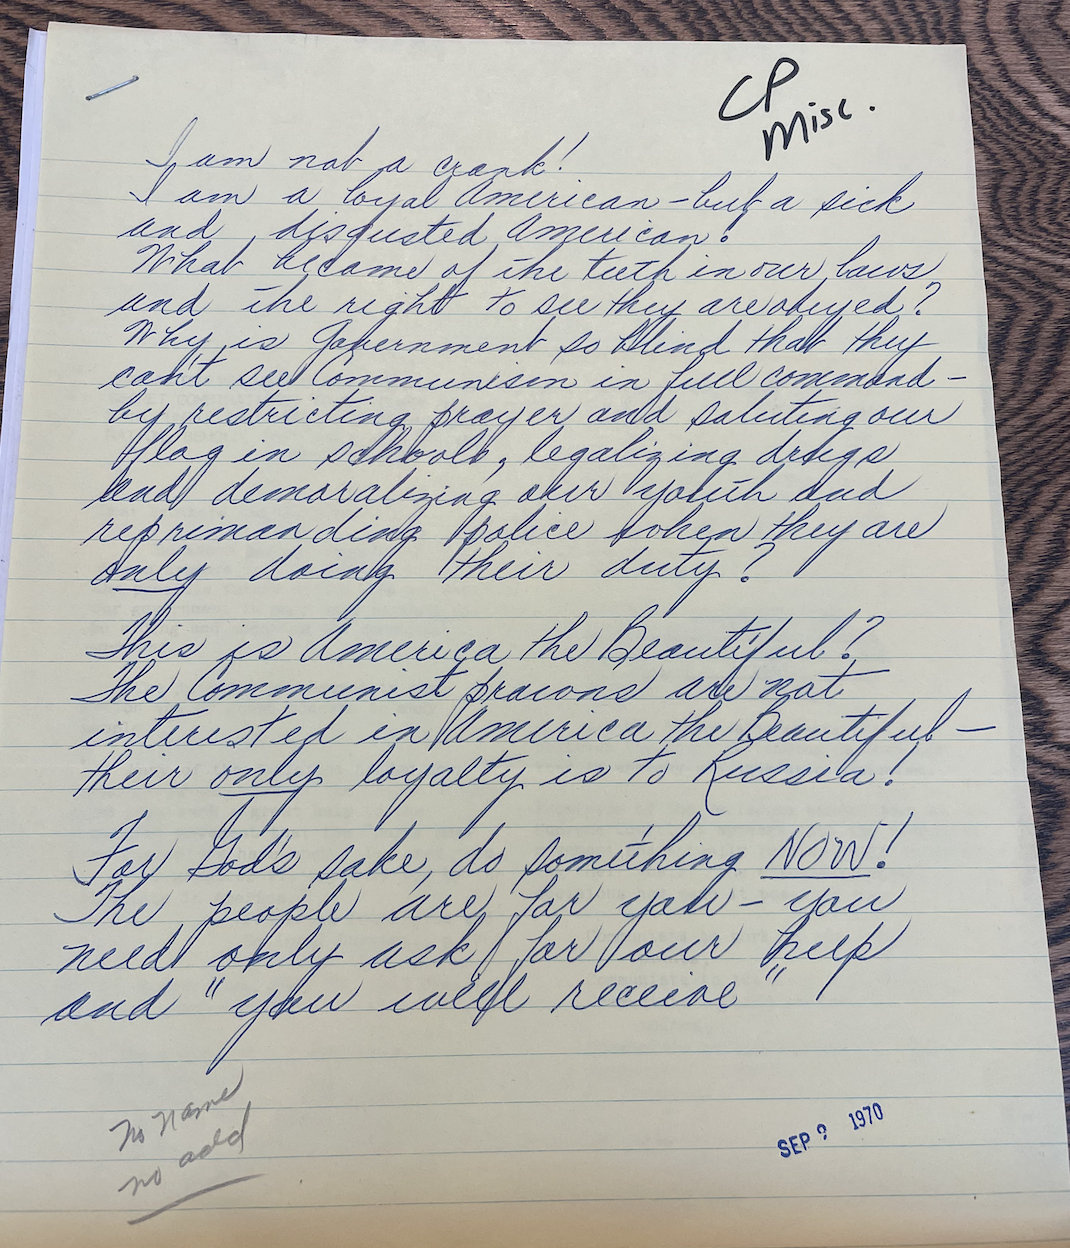 CP
Misc.
I am not a crank!
I am a loyal American - but a sick
and disgusted American.
What became of the teeth in our laws
and the right to see they are obeyed?
Why is Government so blind that they
can't see Communism in full command -
by restricting prayer and saluting our
flag in schools, legalizing drugs
and demoralizing our youth and
reprimanding police when they are
only doing their duty?
This is America the Beautiful?
The Communist are not
interested in America the Beautiful -
their only loyalty is to Russia!
For God's sake, do something NOW!
The people are for you - you
need only ask for our help
and "you will receive"
No Name
no add
SEP 1970